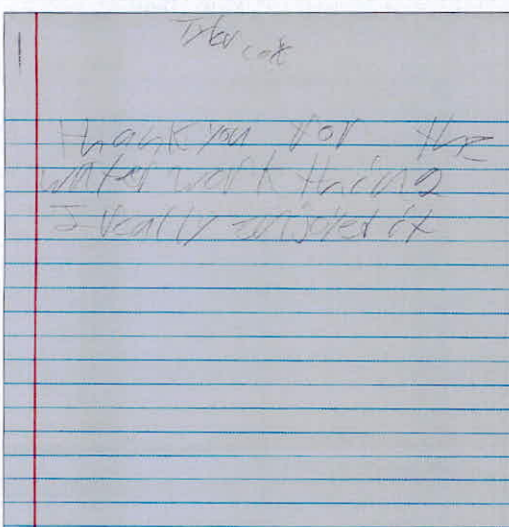 Tyler cox
thank you for the
water work thing
I really enjoyed it